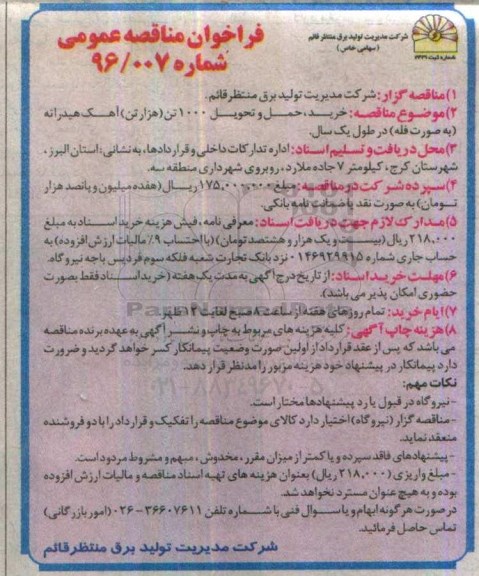 شرکت مدیریت تولید برق منتظر قائم
(سهامی خاص)
فراخوان مناقصه عمومی
شماره ۹۶/۰۰۷
۱)مناقصه گزار: شرکت مدیریت تولید برق منتظر قائم.
۲)موضوع مناقصه: خرید، حمل و تحویل ۱۰۰۰ تن (هزار تن) آهک هیدراته
(به صورت فله) در طول یک سال.
۳)محل دریافت و تسلیم اسناد: اداره تدارکات داخلی و قراردادها، به نشانی: استان البرز،
شهرستان کرج، کیلومتر ۷ جاده ملارد، روبروی شهرداری منطقه سه.
۴)سپرده شرکت در مناقصه: مبلغ ۱۷۵.۰۰۰.۰۰۰ ریال (هفده میلیون و پانصد هزار
تومان) به صورت نقد یا ضمانت نامه بانکی.
۵)مدارک لازم جهت دریافت اسناد: معرفی نامه، فیش هزینه خرید اسناد به مبلغ
۲۱۸.۰۰۰ ریال (بیست و یک هزار و هشتصد تومان) (با احتساب ۹٪ مالیات ارزش افزوده) به
حساب جاری شماره ۰۱۴۶۹۲۹۹۱۵ نزد بانک تجارت شعبه فلکه سوم فردیس یا جه نیروگاه.
۶)مهلت خرید اسناد: از تاریخ درج آگهی به مدت یک هفته (خرید اسناد فقط بصورت
حضوری امکان پذیر می باشد).
۷)ایام خرید: تمام روزهای هفته از ساعت ۸ صبح لغایت ۱۳ ظهر
۸)هزینه چاپ آگهی: کلیه هزینه های مربوط به چاپ و نشر آگهی به عهده برنده مناقصه
می باشد که پس از عقد قرارداد از اولین صورت وضعیت پیمانکار کسر خواهد گردید و ضرورت
دارد پیمانکار در پیشنهاد خود هزینه مزبور را مدنظر قرار دهد.
نکات مهم:
-نیروگاه در قبول یا رد پیشنهادها مختار است.
-مناقصه گزار (نیروگاه) اختیار دارد کالای موضوع مناقصه را تفکیک و قرارداد را با دو فروشنده
منعقد نماید.
-پیشنهادهای فاقد سپرده و یا کمتر از میزان مقرر، مخدوش، مبهم و مشروط مردود است.
-مبلغ واریزی (۲۱۸.۰۰۰ ریال) بعنوان هزینه های تهیه اسناد مناقصه و مالیات ارزش افزوده
بوده و به هیچ عنوان مسترد نخواهد شد.
در صورت هر گونه ابهام و یا سوال فنی با شماره تلفن ۳۶۶۰۷۶۱۱-۰۲۶ (امور بازرگانی)
تماس حاصل فرمائید.
شرکت مدیریت تولید برق منتظر قائم